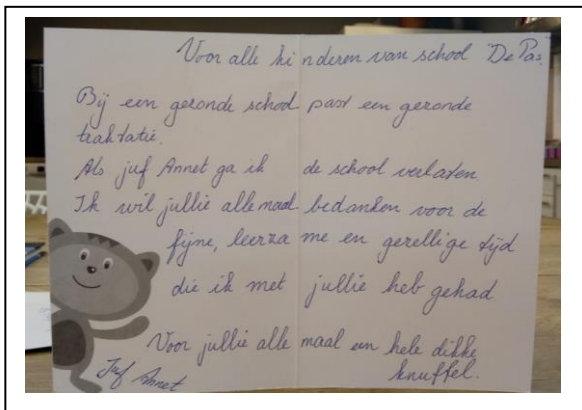 Voor alle kinderen van school "De Pas.
Bij een gezonde school past een gezonde
traktatie.
Als juf Annet ga ik de school verlaten.
Ik wil jullie allemaal bedanken voor de
fijne, leerzame en gezellige tijd
die ik met jullie heb gehad
Voor jullie allemaal een hele dikke
knuffel.
Juf Annet